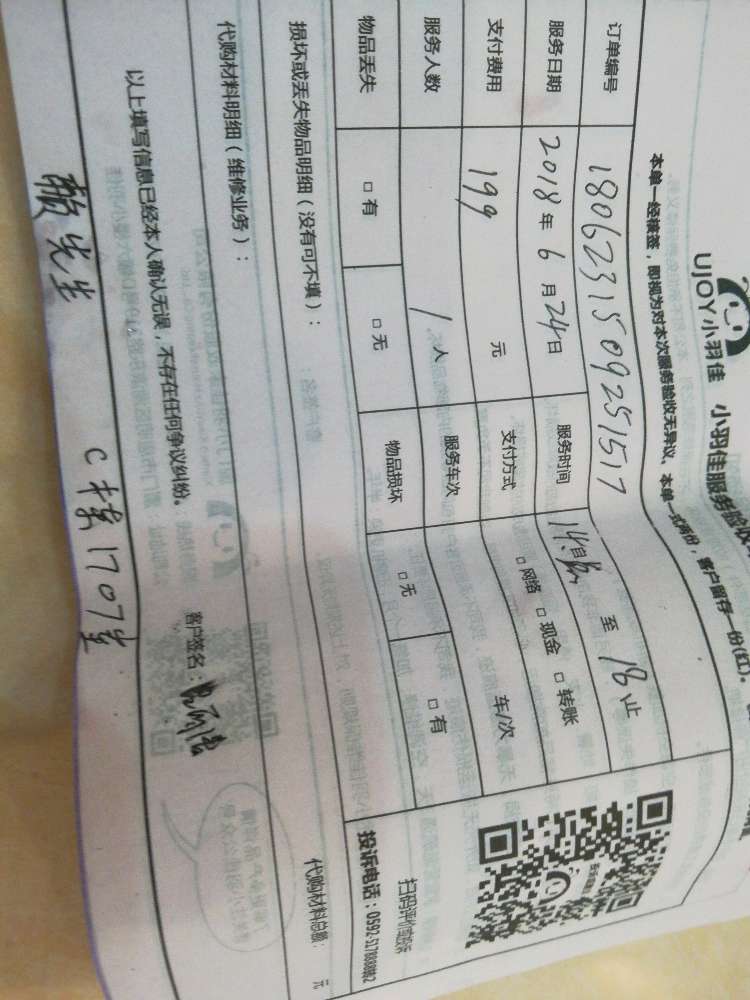 UJOY小羽佳 小羽佳服务验收
本单一经接签，即视为对本次服务验收无异议。本单一式两份，客户留存一份(红)。
订单编号 1806231509251517
服务日期 2018年6月24日 服务时间 14 至 18止
支付费用 199 元 支付方式 □网络 □现金 □转账
服务人数 1人 服务车次 车/次
物品丢失 □有 □无 物品损坏 □无 □有
扫码评价或投诉
损坏或丢失物品明细（没有可不填）：
投诉电话：0592-5178888转2
代购材料明细（维修业务）：
代购材料总额： 元
以上填写信息已经本人确认无误，不存在任何争议纠纷。 客户签名：
先生 C栋1707室